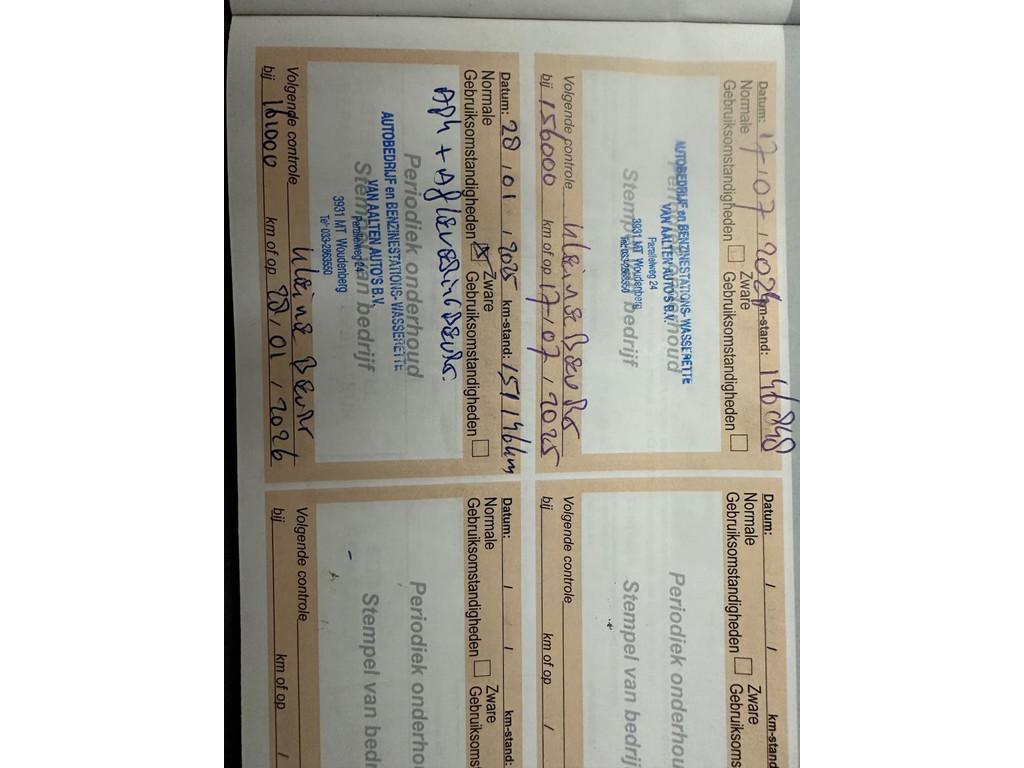 Datum: 17 / 07 / 2024 km-stand: 146848
Normale Zware
Gebruiksomstandigheden Gebruiksomstandigheden
Periodiek onderhoud
Stempel van bedrijf
AUTOBEDRIJF en BENZINESTATIONS-WASSERETTE
VAN AALTEN AUTO'S B.V.
Parallelweg 24
3931 MT Woudenberg
Tel: 033-2863550
Volgende controle kleine Beurt
bij 156000 km of op 17 / 07 / 2025
Datum: 28 / 01 / 2025 km-stand: 151146km
Normale Zware
Gebruiksomstandigheden Gebruiksomstandigheden
APK + Afleveringbeurt.
Periodiek onderhoud
Stempel van bedrijf
AUTOBEDRIJF en BENZINESTATIONS-WASSERETTE
VAN AALTEN AUTO'S B.V.
Parallelweg 24
3931 MT Woudenberg
Tel: 033-2863550
Volgende controle kleine Beurt
bij 161000 km of op 28 / 01 / 2026
Datum: / / km-stand
Normale Zware
Gebruiksomstandigheden Gebruiksoms
Periodiek onderhou
Stempel van bedrijf
Volgende controle
bij km of op /
Datum: / / km-stand
Normale Zware
Gebruiksomstandigheden Gebruiksoms
Periodiek onderhou
Stempel van bedr
Volgende controle
bij km of op /